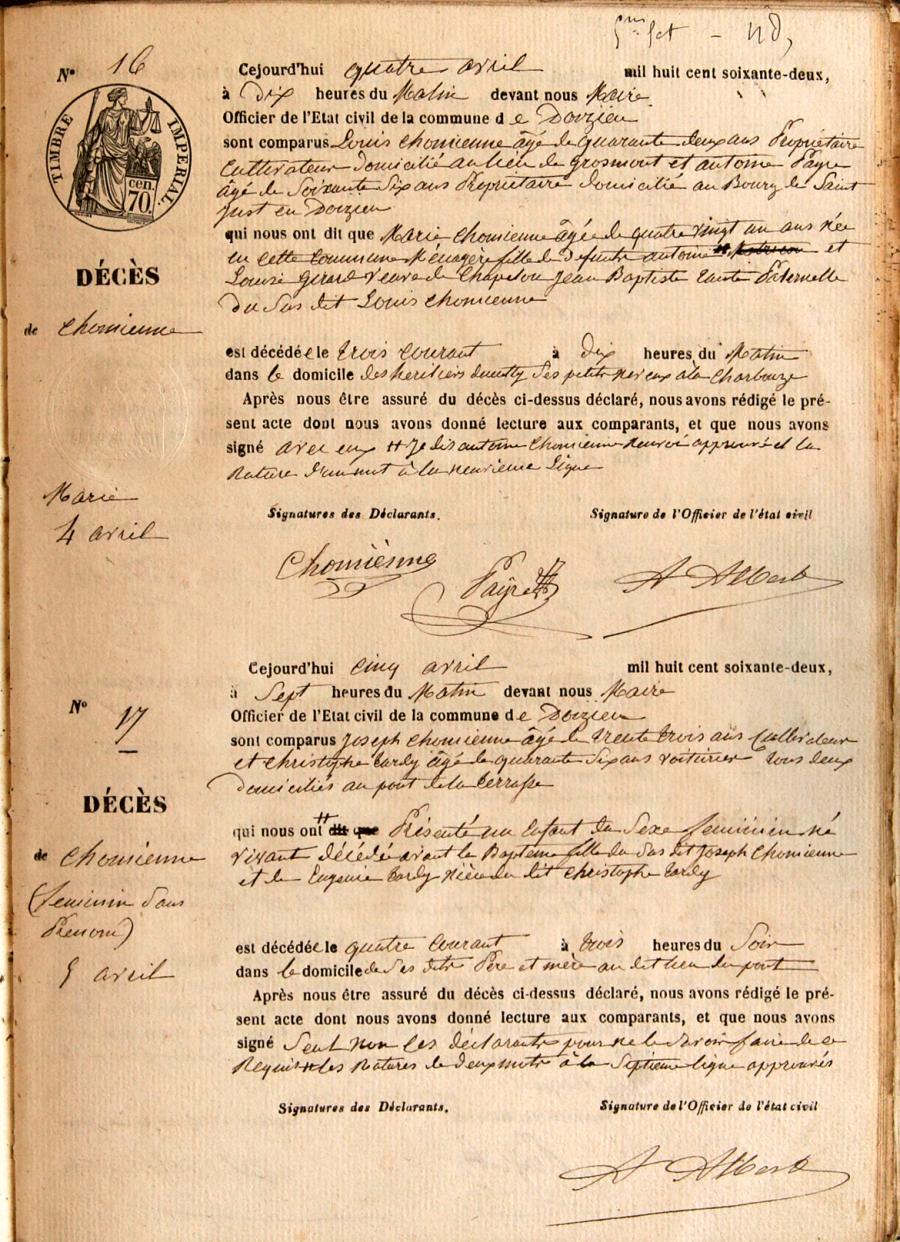 N° 16
Cejourd'hui quatre avril mil huit cent soixante-deux,
à Dix heures du Matin devant nous Maire
Officier de l'Etat civil de la commune de Doizieu
sont comparus Louis Chomienne âgé de quarante deux ans Propriétaire
Cultivateur Domicilié au lieu de Grosmont et antoine Payre
âgé de Soixante Six ans Propriétaire Domicilié au Bourg de Saint
Just en Doizieu
qui nous ont dit que Marie Chomienne âgée de quatre vingt un ans née
en cette Commune Ménagère fille de Defunts antoine # et
Louise Girard Veuve de Chapelon Jean Baptiste tante Paternelle
du Sus dit Louis Chomienne
TIMBRE IMPERIAL.
cen. 70.
DÉCÈS
de Chomienne
Marie
4 avril
est décédée le trois courant à Dix heures du Matin
dans le domicile des heritiers Ses petits neveux a la Charbouze
Après nous être assuré du décès ci-dessus déclaré, nous avons rédigé le pré-
sent acte dont nous avons donné lecture aux comparants, et que nous avons
signé avec eux # Je dis antoine Chomienne Renvoi approuvé et la
Rature D'un mot à la neuvieme Ligne
Signatures des Déclarants. Signature de l'Officier de l'état civil
Chomienne Payre A Albert
N° 17
Cejourd'hui cinq avril mil huit cent soixante-deux,
à Sept heures du Matin devant nous Maire
Officier de l'Etat civil de la commune de Doizieu
sont comparus Joseph Chomienne âgé de trente trois ans Cultivateur
et Christophe tardy âgé de quarante Six ans voiturier tous deux
Domiciliés au pont de la terrasse
DÉCÈS
de Chomienne
(feminin Sans
Prenom)
5 avril
qui nous ont # dit que Présenté un Enfant du Sexe feminin né
vivant décédé avant le Bapteme fille du Sus dit Joseph Chomienne
et de Eugenie tardy niéce du dit Christophe tardy
est décédée le quatre courant à trois heures du Soir
dans le domicile de Ses dits Père et mère au dit lieu du pont
Après nous être assuré du décès ci-dessus déclaré, nous avons rédigé le pré-
sent acte dont nous avons donné lecture aux comparants, et que nous avons
signé Seul non les déclarants pour ne le Savoir faire de ce
Requis # les Ratures de deux mots à la Septieme ligne approuvés
Signatures des Déclarants. Signature de l'Officier de l'état civil
A Albert